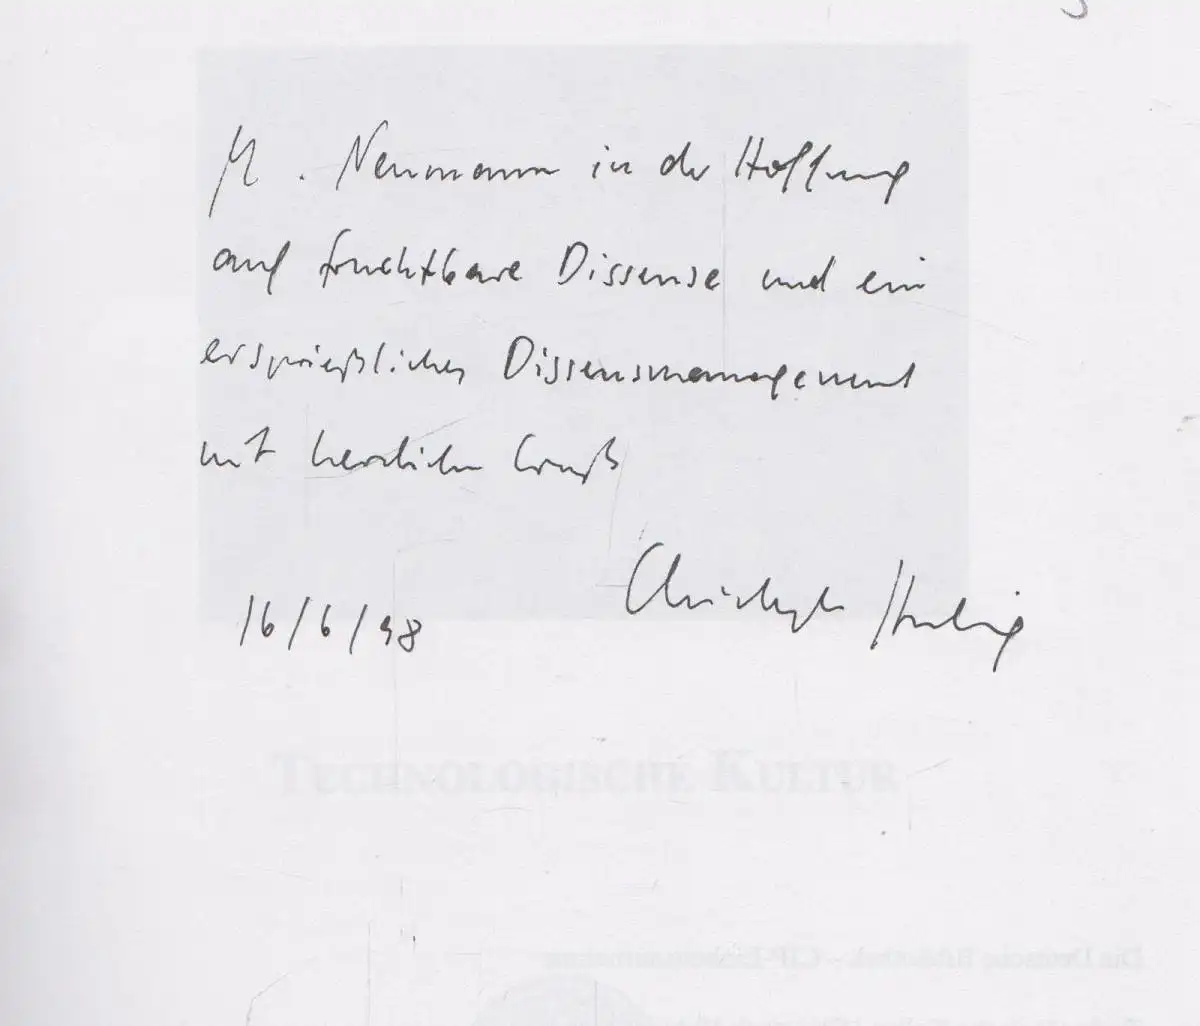 M. Neumann in der Hoffnung
auf fruchtbare Dissense und ein
ersprießliches Dissensmanagement
mit herzlichem Gruß
Christoph Hubig
16/6/98
TECHNOLOGISCHE KULTUR
Die Deutsche Bibliothek – CIP-Einheitsaufnahme